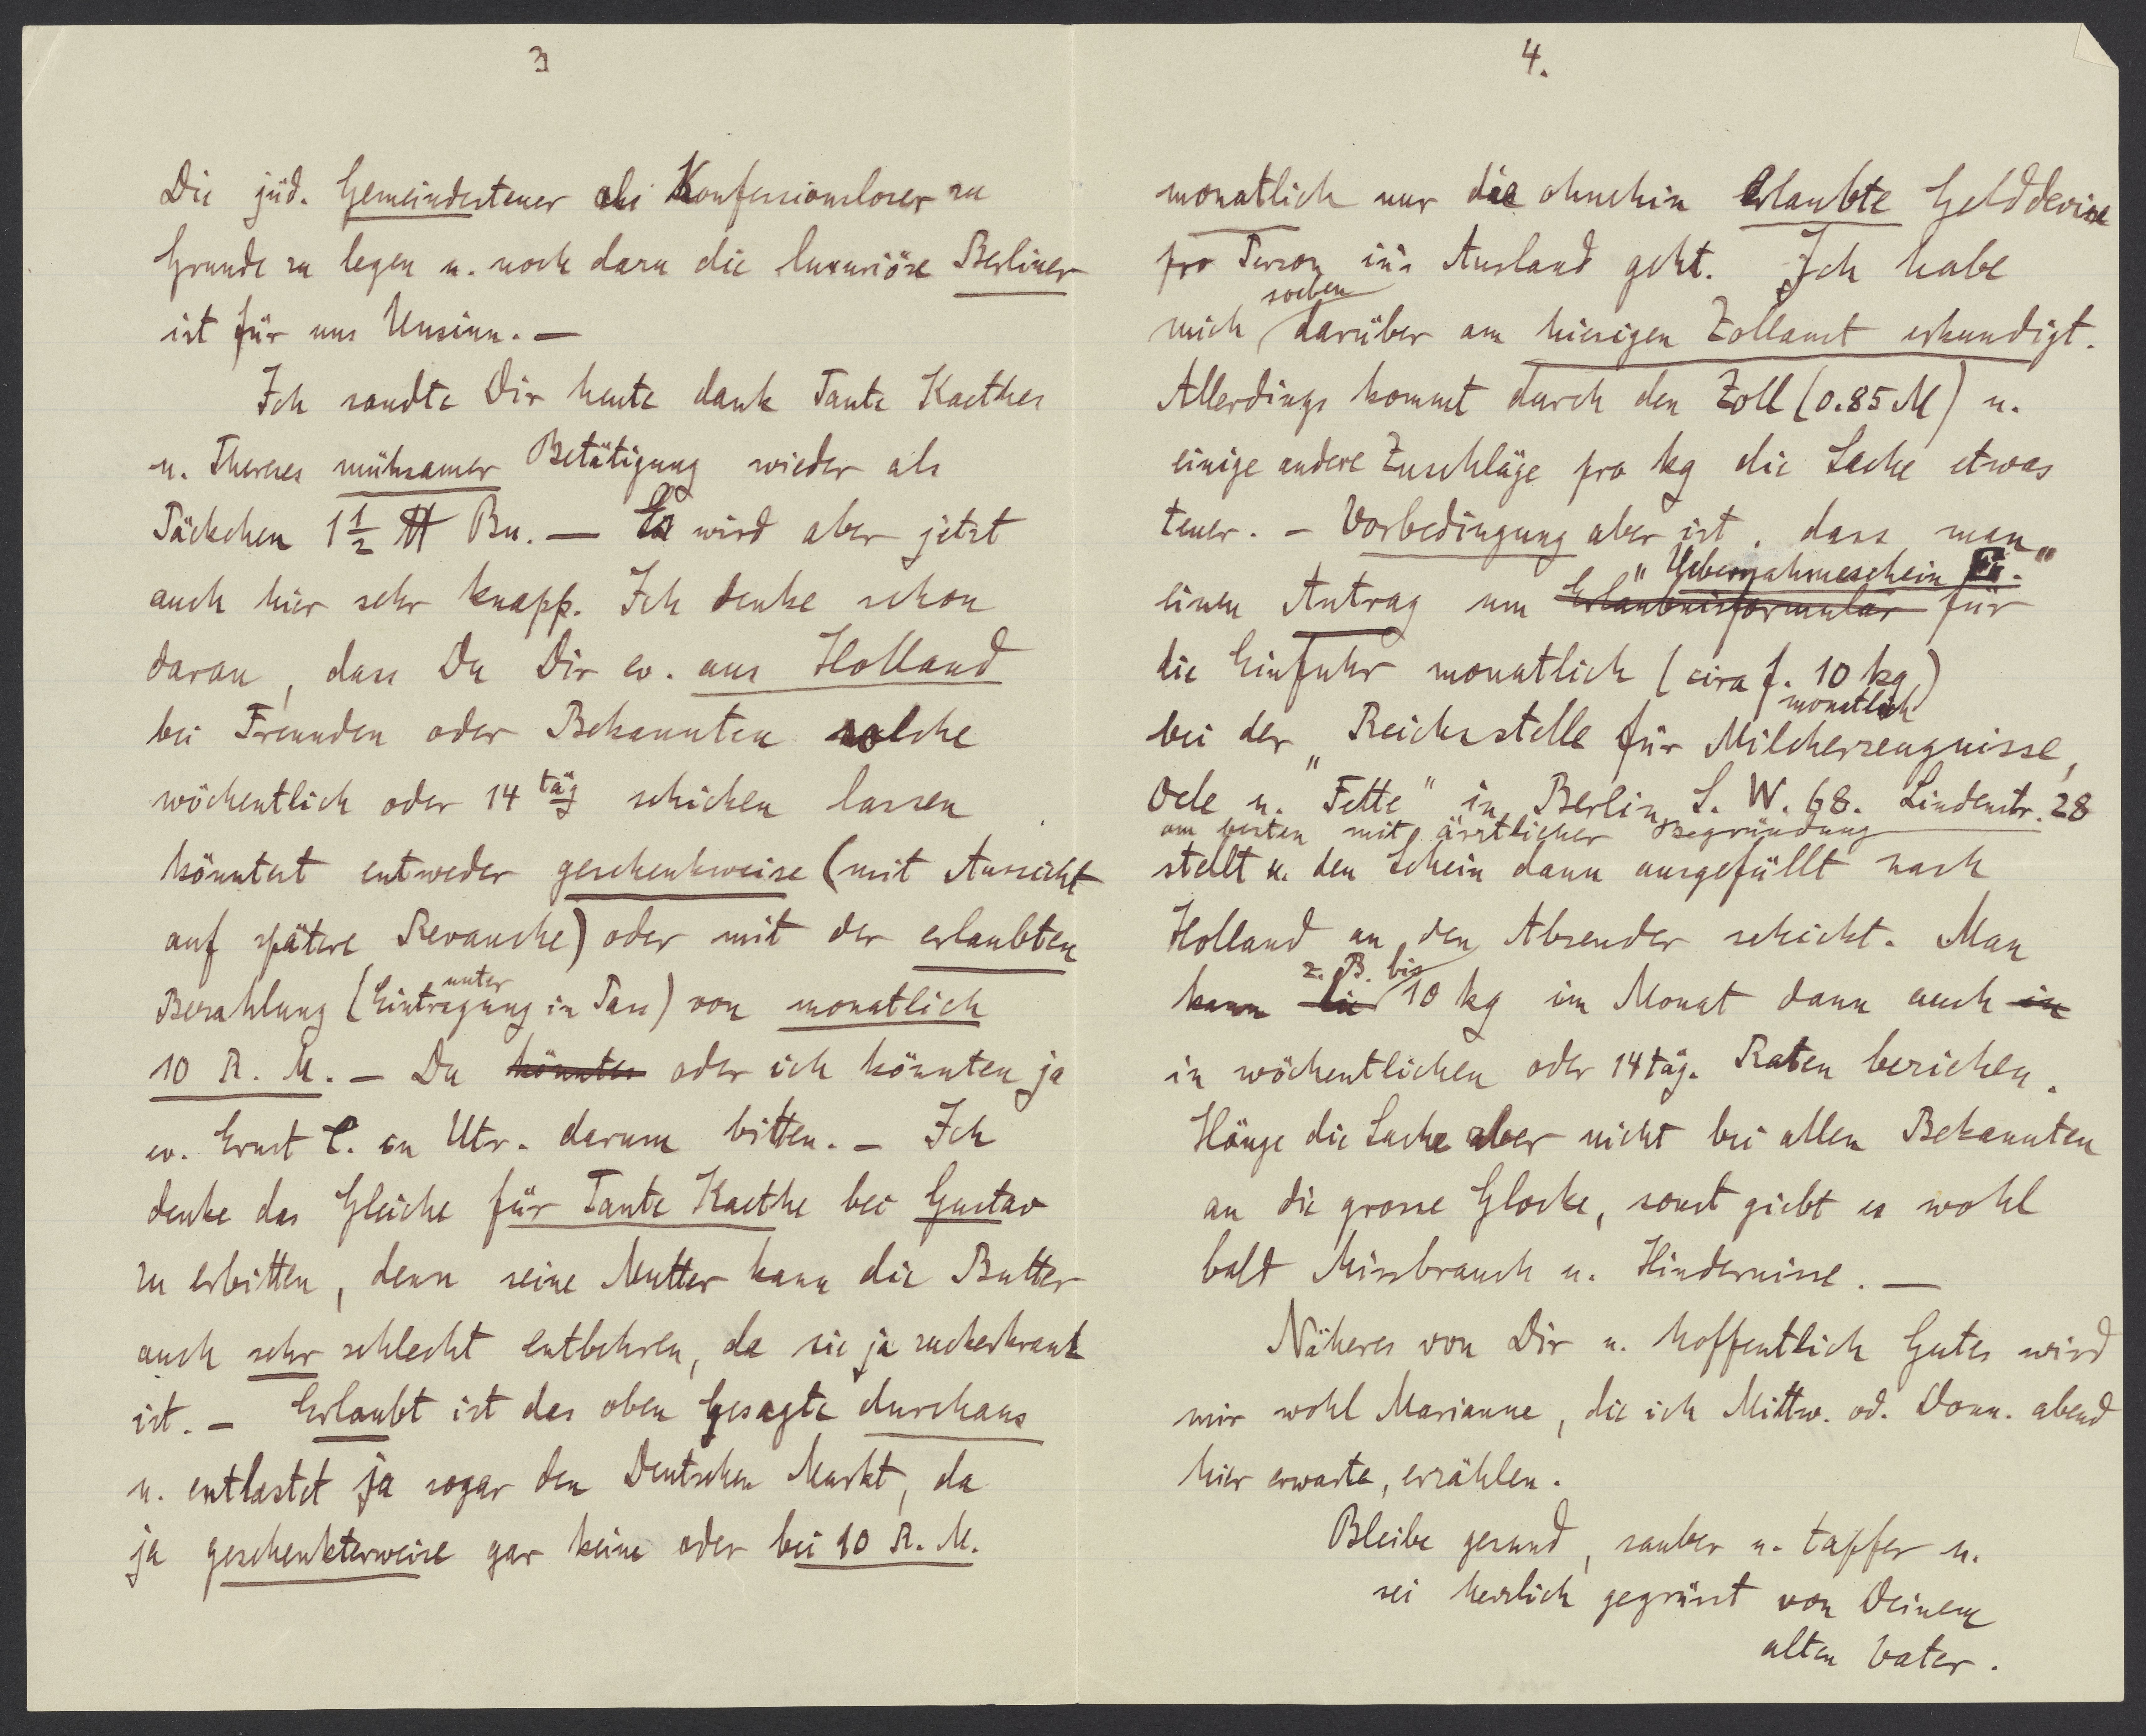 3
Die jüd. Gemeindesteuer als Konfessionsloser zu
Grunde zu legen u. noch dazu die luxuriöse Berliner
ist für uns Unsinn. —
Ich sandte Dir heute dank Tante Kaethes
u. Thereses mühsamer Betätigung wieder als
Päckchen 1 1/2 ℔ Bu. — Es wird aber jetzt
auch hier sehr knapp. Ich denke schon
daran, dass Du Dir ev. aus Holland
bei Freunden oder Bekannten solche
wöchentlich oder 14 täg schicken lassen
könntest entweder geschenkweise (mit Aussicht
auf spätere Revanche) oder mit der erlaubten
Bezahlung (unter Eintragung in Pass) von monatlich
10 R. M. — Du könntes oder ich könnten ja
ev. Ernst C. in Utr. darum bitten. — Ich
denke das Gleiche für Tante Kaethe bei Gustav
zu erbitten, denn seine Mutter kann die Butter
auch sehr schlecht entbehren, da sie ja zuckerkrank
ist. — Erlaubt ist das oben Gesagte durchaus
u. entlastet ja sogar den Deutschen Markt, da
ja geschenkterweise gar keine oder bei 10 R. M.
4.
monatlich nur die ohnehin erlaubte Gelddevise
pro Person in's Ausland geht. Ich habe
mich soeben darüber am hiesigen Zollamt erkundigt.
Allerdings kommt durch den Zoll (0.85 M) u.
einige andere Zuschläge pro kg die Sache etwas
teuer. — Vorbedingung aber ist, dass man
"Uebernahmeschein Ei."
einen Antrag um Erlaubnisformular für
die Einfuhr monatlich (cira f. 10 kg monatlich)
bei der "Reichsstelle für Milcherzeugnisse,
Oele u. Fette" in Berlin S. W. 68. Lindenstr. 28
am besten mit ärztlicher Begründung
stellt u. den Schein dann ausgefüllt nach
Holland an den Absender schickt. Man
kann die z. B. bis 10 kg im Monat dann auch in
in wöchentlichen oder 14täg. Raten beziehen.
Hänge die Sache aber nicht bei allen Bekannten
an die grosse Glocke, sonst giebt es wohl
balt Missbrauch u. Hindernisse. —
Näheres von Dir u. hoffentlich Gutes wird
mir wohl Marianne, die ich Mittw. od. Donn. abend
hier erwarte, erzählen.
Bleibe gesund, sauber u. tapfer u.
sei herzlich gegrüsst von Deinem
alten Vater.